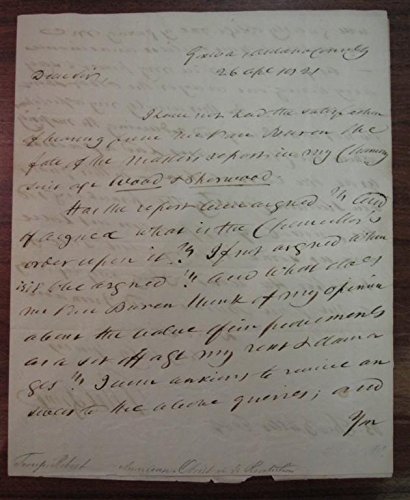 26 Apl 1821
Dear Sir
I have not had the satisfaction
of hearing from Mr Van Buren the
fate of the Masters report in my Chancery
suit agt Wood & Sherwood
Has the report been argued? and
if argued what is the Chancellor's
order upon it? If not argued when
is it to be argued? and what does
Mr Van Buren think of my opinion
about the value of improvements
as a set off agt my rent & dama
ges? I am anxious to receive an
swers to the above queries; and
Yr